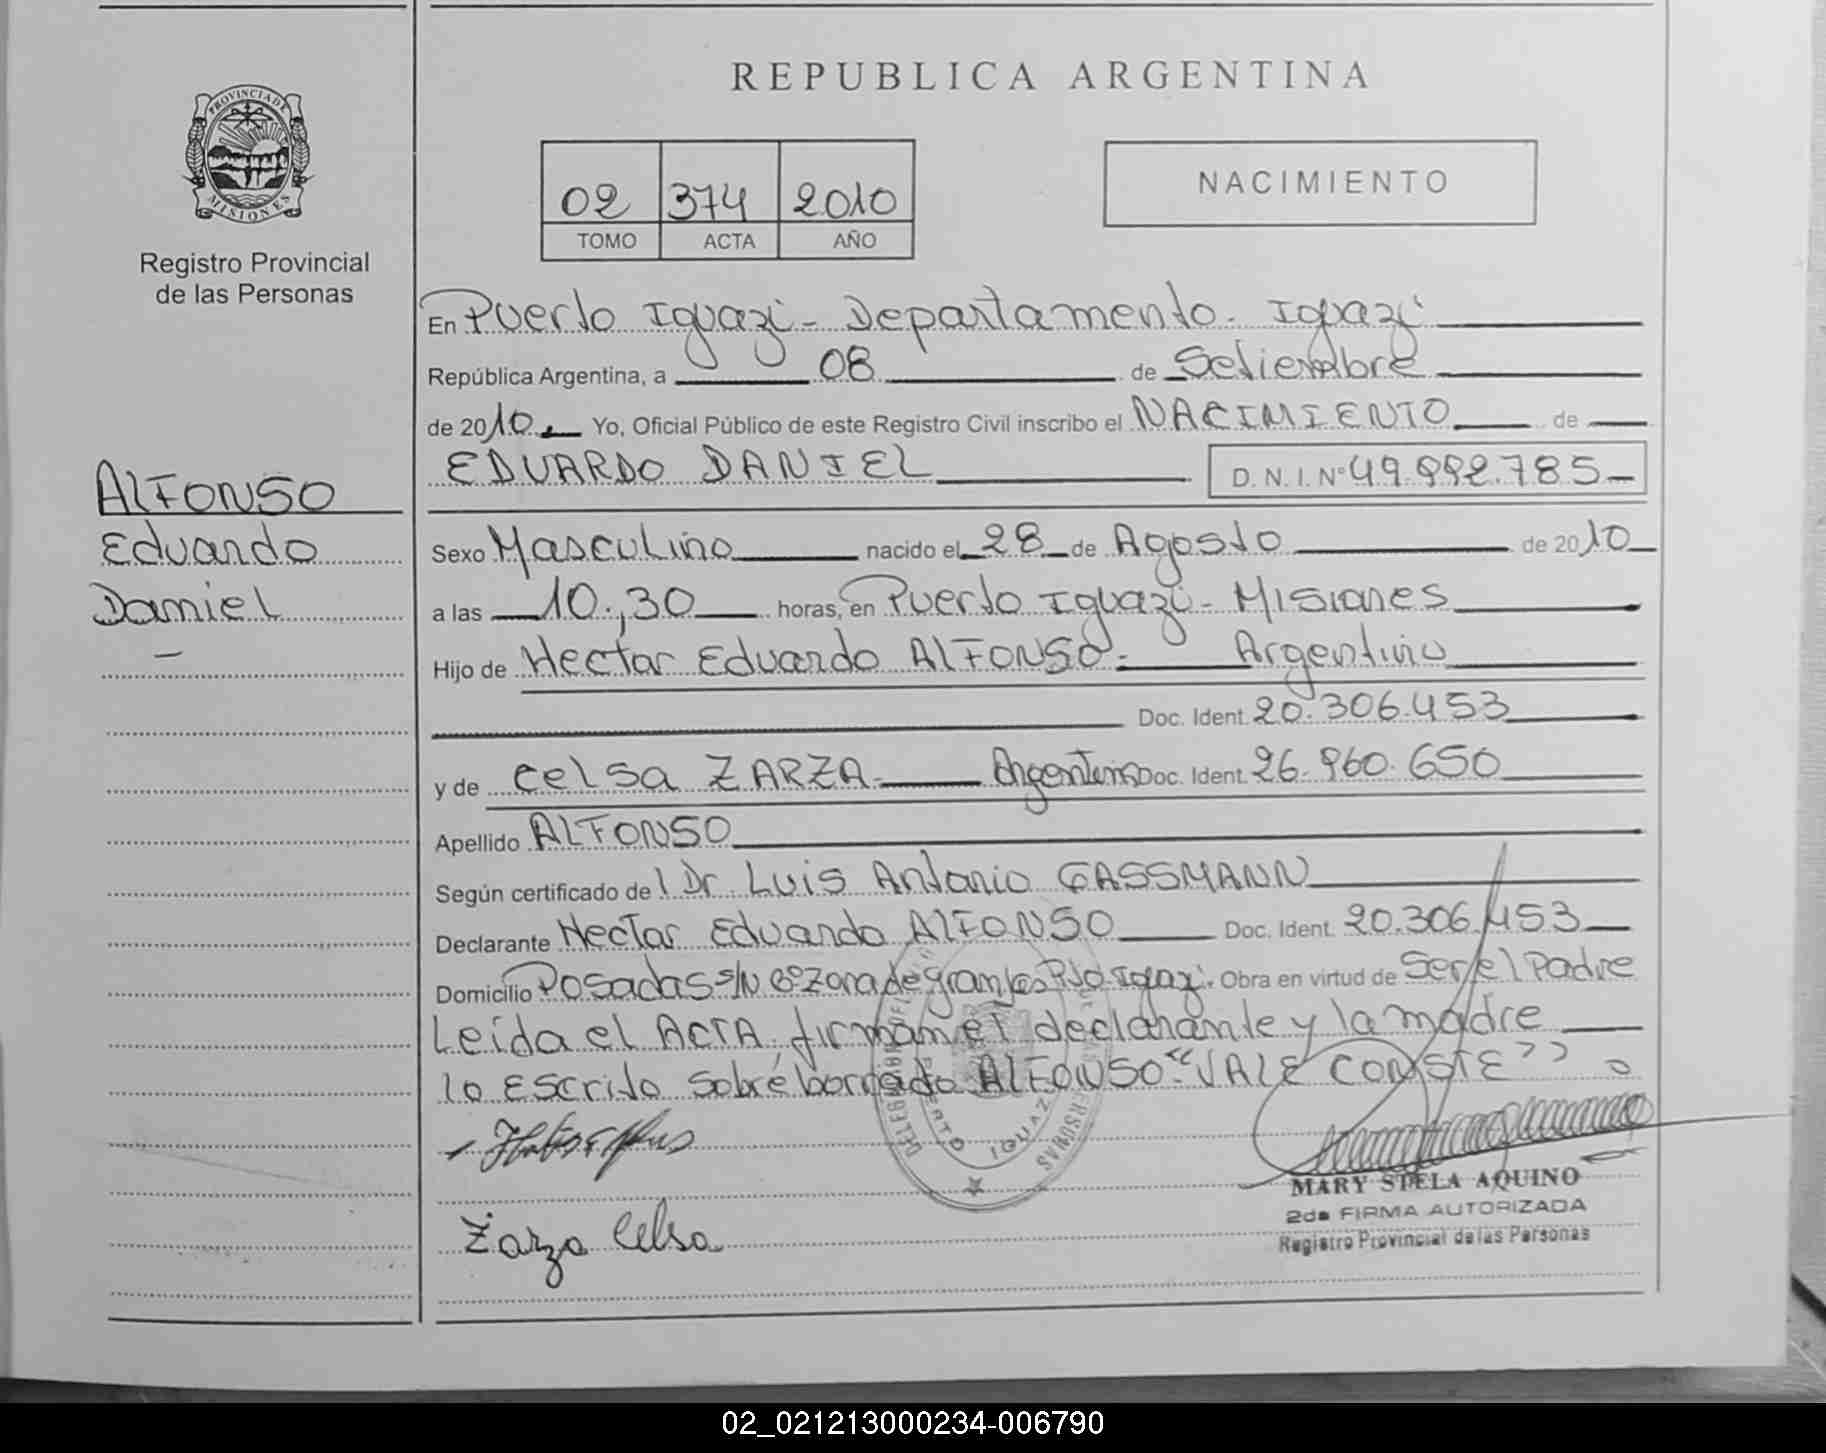 REPUBLICA ARGENTINA
PROVINCIA DE
MISIONES
Registro Provincial
de las Personas
02 374 2010
TOMO ACTA AÑO
NACIMIENTO
ALFONSO
Eduardo
Daniel
En Puerto Iguazú - Departamento - Iguazú
República Argentina, a 08 de Setiembre
de 2010 Yo, Oficial Público de este Registro Civil inscribo el NACIMIENTO de
EDUARDO DANIEL D.N.I. Nº 49.992.785
Sexo Masculino nacido el 28 de Agosto de 2010
a las 10,30 horas, en Puerto Iguazú - Misiones
Hijo de Hector Eduardo ALFONSO - Argentino
Doc. Ident. 20.306.453
y de Celsa ZARZA - Argentina Doc. Ident. 26.960.650
Apellido ALFONSO
Según certificado del Dr. Luis Antonio GASSMANN
Declarante Hector Eduardo ALFONSO Doc. Ident. 20.306.453
Domicilio Posadas s/N Zona de granjas Pto Iguazú. Obra en virtud de Ser el Padre
Leída el ACTA, firman el declarante y la madre
lo Escrito sobre borrado ALFONSO "VALE CONSTE"
Zarza Celsa
MARY STELA AQUINO
2da FIRMA AUTORIZADA
Registro Provincial de las Personas
02_021213000234-006790